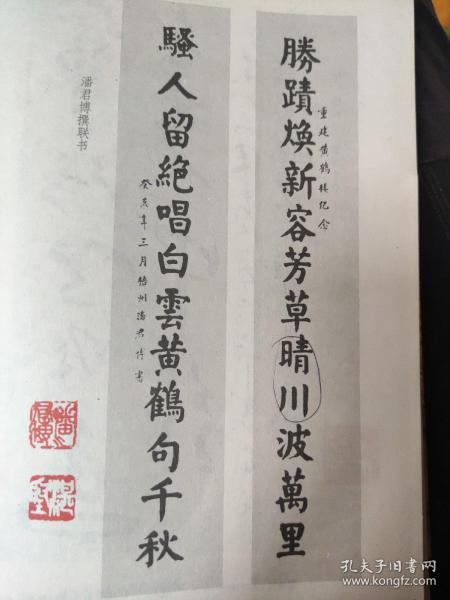 勝蹟煥新容芳草晴川波萬里
重建黃鶴樓纪念
騷人留絕唱白雲黄鶴句千秋
癸亥年三月梧州潘君博書
潘君博撰联书
孔夫子旧书网
www.kongfz.com